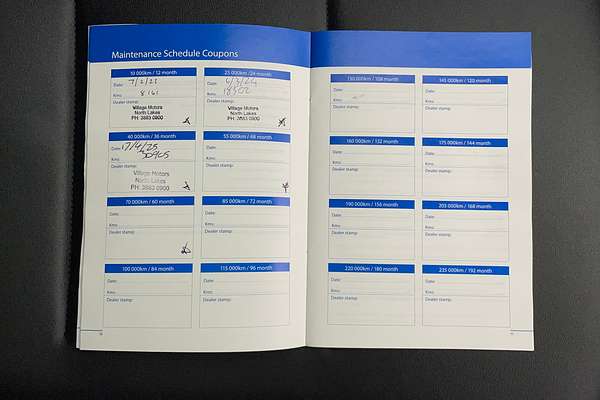 Maintenance Schedule Coupons
10 000km / 12 month
Date:
Kms: 8161
Dealer stamp:
Village Motors
North Lakes
PH: 3883 0900
25 000km /24 month
Date:
Kms:
Dealer stamp:
Village Motors
North Lakes
PH: 3883 0900
40 000km / 36 month
Date: 17/4/25
Kms:
Dealer stamp:
Village Motors
North Lakes
PH: 3883 0900
55 000km / 48 month
Date:
Kms:
Dealer stamp:
70 000km / 60 month
Date:
Kms:
Dealer stamp:
85 000km / 72 month
Date:
Kms:
Dealer stamp:
100 000km / 84 month
Date:
Kms:
Dealer stamp:
115 000km / 96 month
Date:
Kms:
Dealer stamp:
130 000km / 108 month
Date:
Kms:
Dealer stamp:
145 000km / 120 month
Date:
Kms:
Dealer stamp:
160 000km / 132 month
Date:
Kms:
Dealer stamp:
175 000km / 144 month
Date:
Kms:
Dealer stamp:
190 000km / 156 month
Date:
Kms:
Dealer stamp:
205 000km / 168 month
Date:
Kms:
Dealer stamp:
220 000km / 180 month
Date:
Kms:
Dealer stamp:
235 000km / 192 month
Date:
Kms:
Dealer stamp: